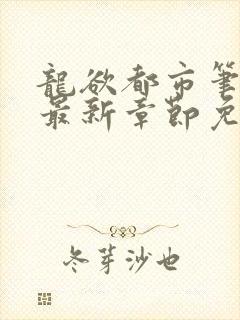 龍欲都市筆
最新章節免
冬芽沙也